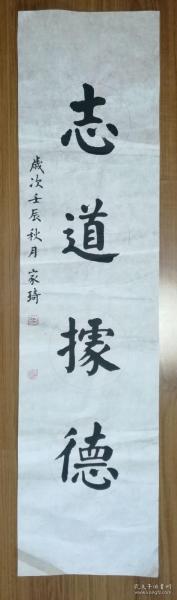 志道據德
歲次壬辰秋月 家琦
孔夫子旧书网